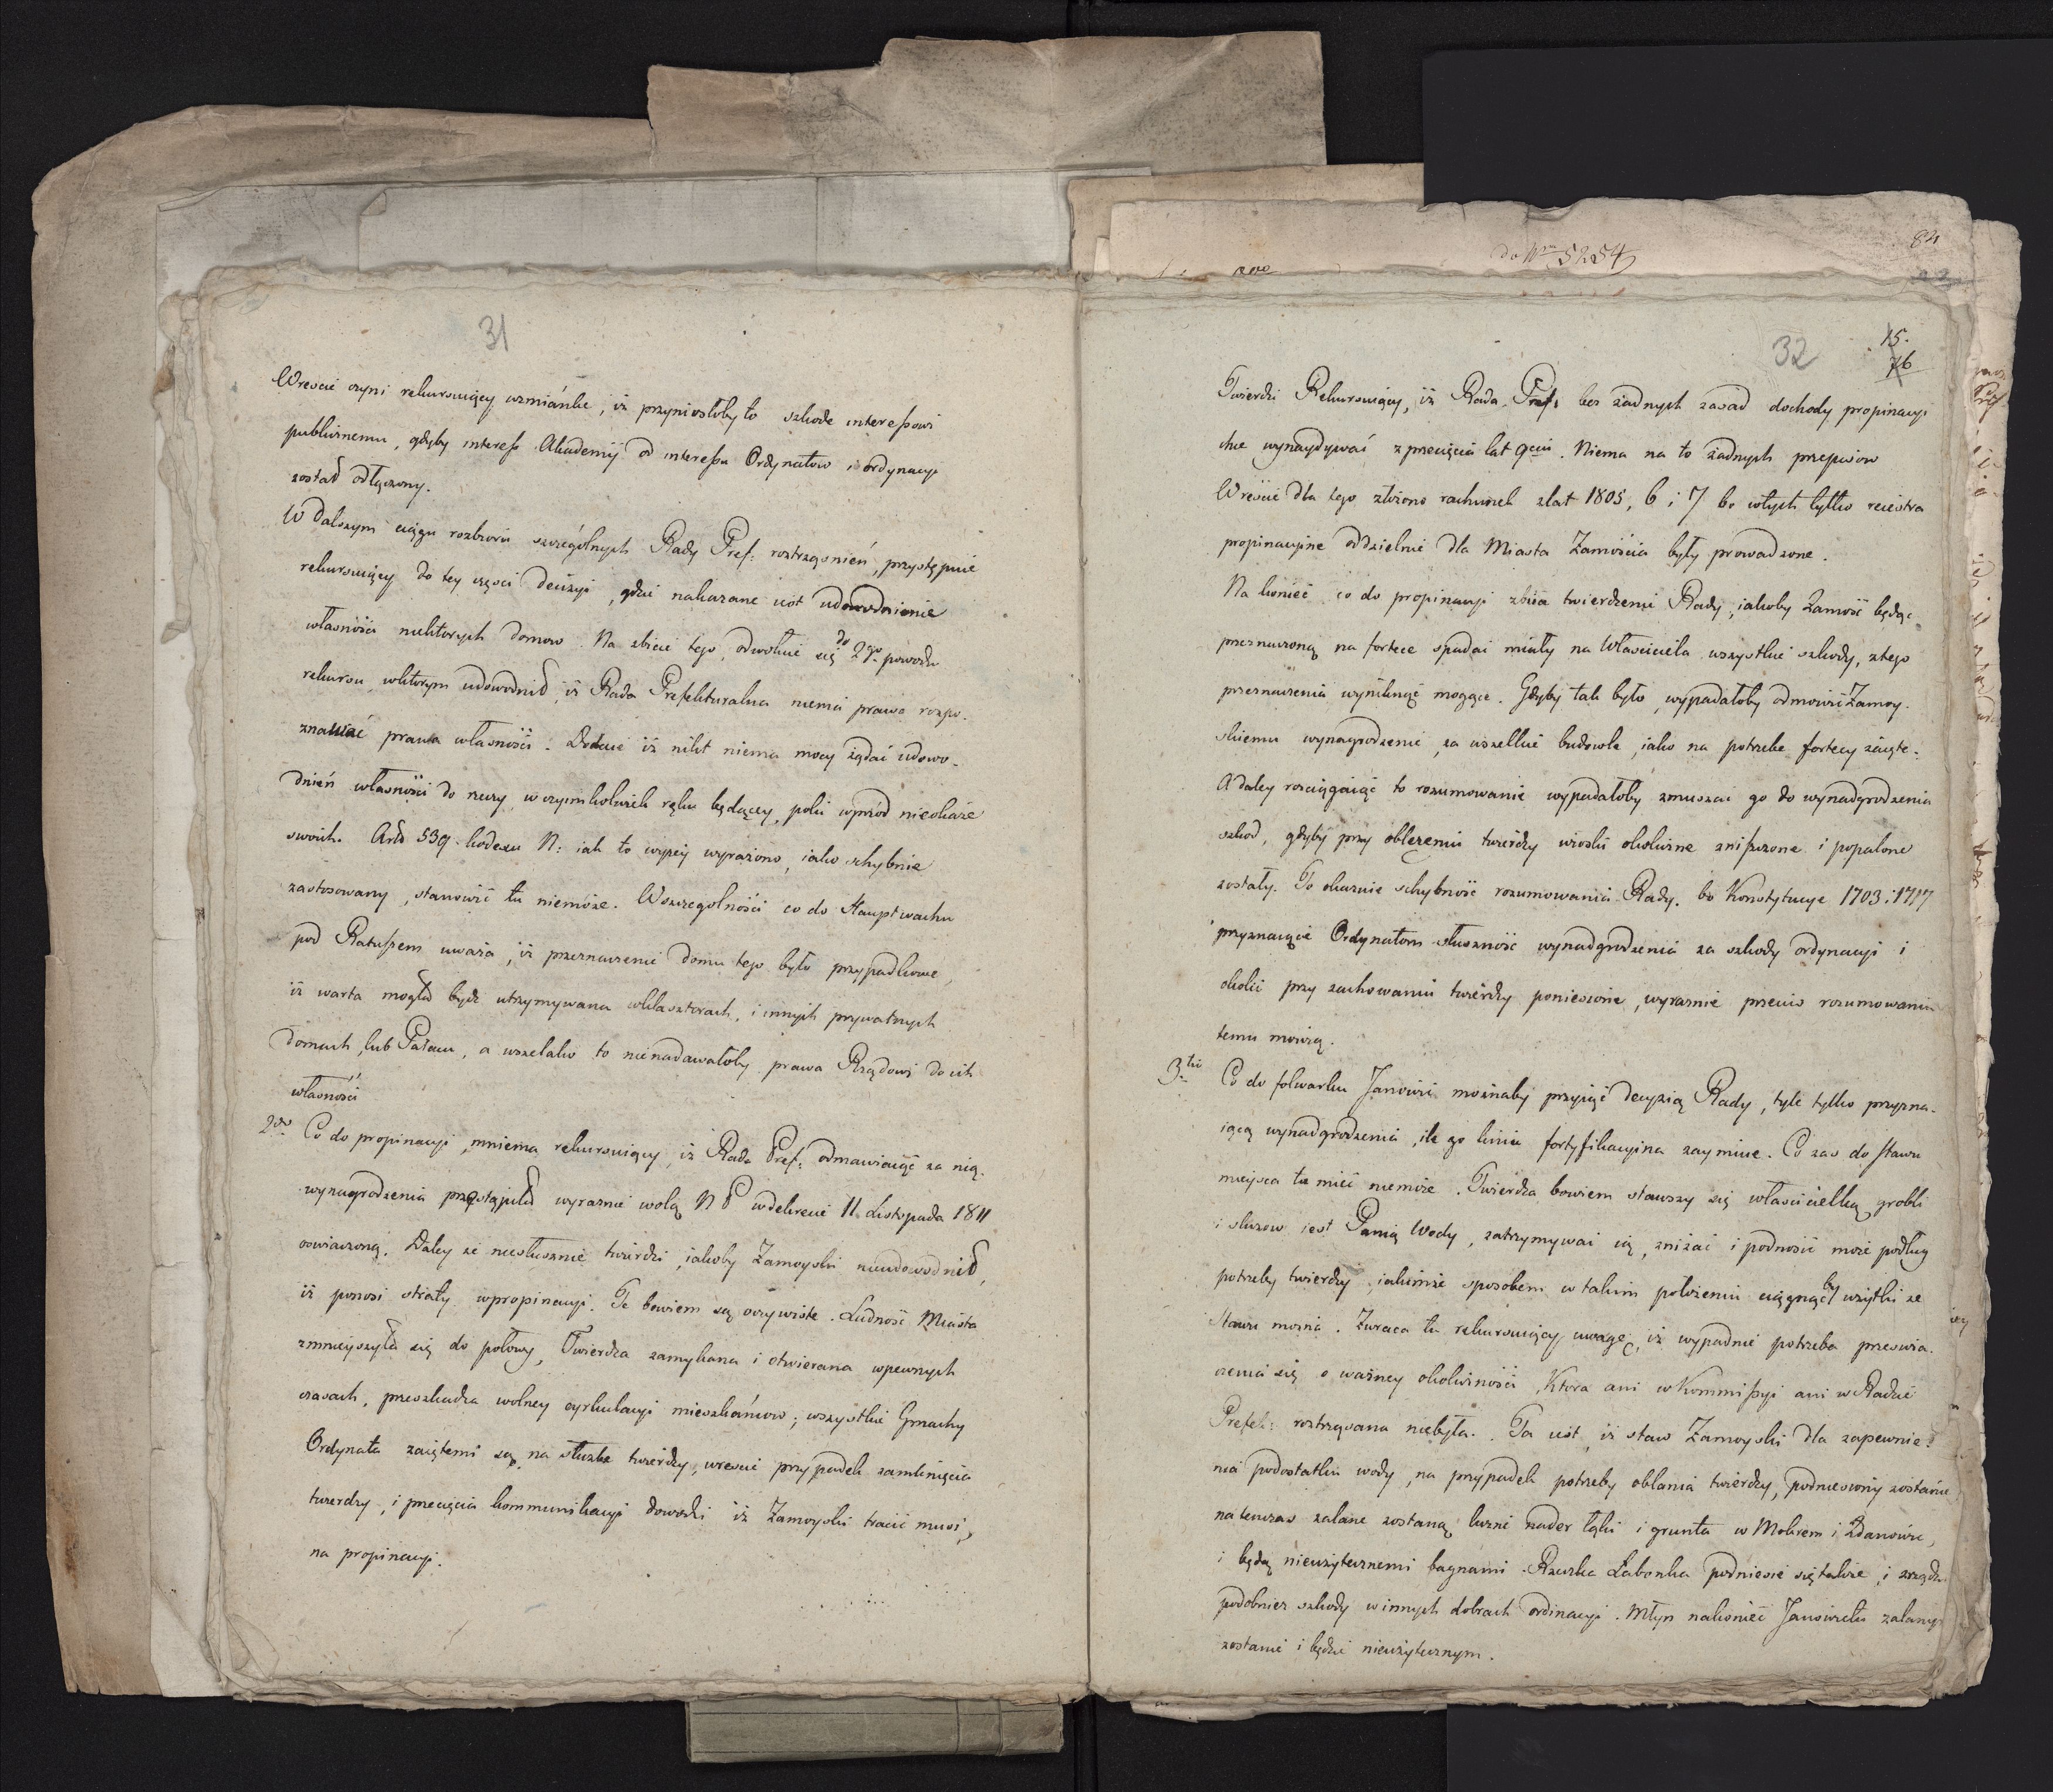 31
Wrescie czyni rekursuiący wzmiánkę, iż przyniosłoby to szkodę interessowi
publicznemu, gdyby interess Akademij od interessu Ordynatow i ordynacyi
został odłączony.
W dalszym ciągu rozbioru szczególnych Rady Pref: roztrzągnień, przystępuie
rekursuiący do tey części decizyi, gdzie nakazane iest udowodnienie
własności niektorych domow. Na zbicie tego, odwołuie się do 2go powodu
rekursu, wktorym udowodnił, iż Rada Prefekturalna niema prawa rozpo-
znawać prawa własności. Dodaie iż nikt niema mocy żądać udowo-
dnień własności do rzeczy w czymkolwiek ręku będącey, poki wprzód nieokaże
swoich. Artt 539. kodexu N: iak to wyżey wyrażono, iako uchybnie
zastosowany, stanowić tu niemoże. Wszczególności co do Hauptwachu
pod Ratuszem uważa, iż przeznaczenie domu tego było przypadkowe,
iż warta mogła bydź utrzymywana wklasztorach, i innych prywatnych
domach, lub Pałacu, a wszelako to nienadawałoby prawa Rządowi do ich
własności
2do Co do propinacyi, mniema rekursuiący, iż Rada Pref: odmawiaiąc za nią
wynagrodzenia przestąpiła wyraznie wolą N P wdekrecie 11 Listopada 1811
oswiadczoną. Daley że niesłusznie twierdzi, iakoby Zamoyski nieudowodnił,
iż ponosi straty wpropinacyi. Te bowiem są oczywiste. Ludność Miasta
zmnieyszyła się do połowy, Twierdza zamykana i otwierana wpewnych
czasach, przeszkadza wolney cyrkulacyi mieszkańcow; wszystkie Gmachy
Ordynata zaiętemi są na służbę twierdzy, wrescie przypadek zamknięcia
twierdzy, i przecięcia kommunikacyi dowodzi iż Zamoyski tracić musi,
na propinacyi.
do Nru 5254
82
32
15.
76
Twierdzi Rekursuiący, iż Rada Pref: bez żadnych zasad dochody propinacyi
chce wynaydywać z przecięcia lat 9ciu. Niema na to żadnych przepisow
Wreście dla tego złożono rachunek z lat 1805, 6 i 7 bo wtych tylko reiestra
propinacyine oddzielnie dla Miasta Zamościa były prowadzone.
Na koniéc co do propinacyi zbiia twierdzenie Rady, iakoby Zamość będąc
przeznaczoną na fortecę spadać miały na Właściciela wszystkie szkody, ztego
przeznaczenia wyniknąć mogące. Gdyby tak było, wypadałoby odmowić Zamoy-
skiemu wynagrodzenie, za wszelkie budowle, iako na potrzebę fortecy zaięte.
A daley rościągaiąc to rozumowanie wypadałoby zmuszać go do wynadgrodzenia
szkod, gdyby przy oblężeniu twierdzy wioski okoliczne zniszczone i popalone
zostały. To okazuie uchybność rozumowania Rady. bo Konstytucye 1703 i 1717
przyznaiące Ordynatom słuszność wynadgrodzenia za szkody ordynacyi i
okolic przy zachowaniu twierdzy poniesione, wyraznie przeciw rozumowaniu
temu mowią.
3tio Co do folwarku Janowic możnaby przyiąć decyzią Rady, tyle tylko przyzna-
iącą wynadgrodzenia, ile go linia fortyfikacyina zaymuie. Co zas do stawu
mieysca tu mieć niemoże. Twierdza bowiem stawszy się właścicielką grobli
i sluzow iest Panią Wody, zatrzymywać ią, zniżać i podnosić może podług
potrzeby twierdzy, iakimże sposobem w takim położeniu ciągnąć by użytki ze
stawu można. Zwraca tu rekursuiący uwagę, iż wypadnie potrzeba przeswia-
czenia się o ważney okoliczności, Ktora ani w Kommissyi ani w Radzie
Prefek: roztrząsana niebyła. Ta iest, iż staw Zamoyski dla zapewnie-
nia podostatku wody, na przypadek potrzeby oblania twierdzy, podniesiony zostanie
natenczas zalane zostaną liczne nader łąki i grunta w Mokrem i Zdanowie,
i będą nieużytecznemi bagnami. Rzeczka Łabonka podniesie się także, i zrządzi
podobnież szkody w innych dobrach ordinacyi. Młyn nakoniéc Janowicki zalany
zostanie i będzie nieużytecznym.